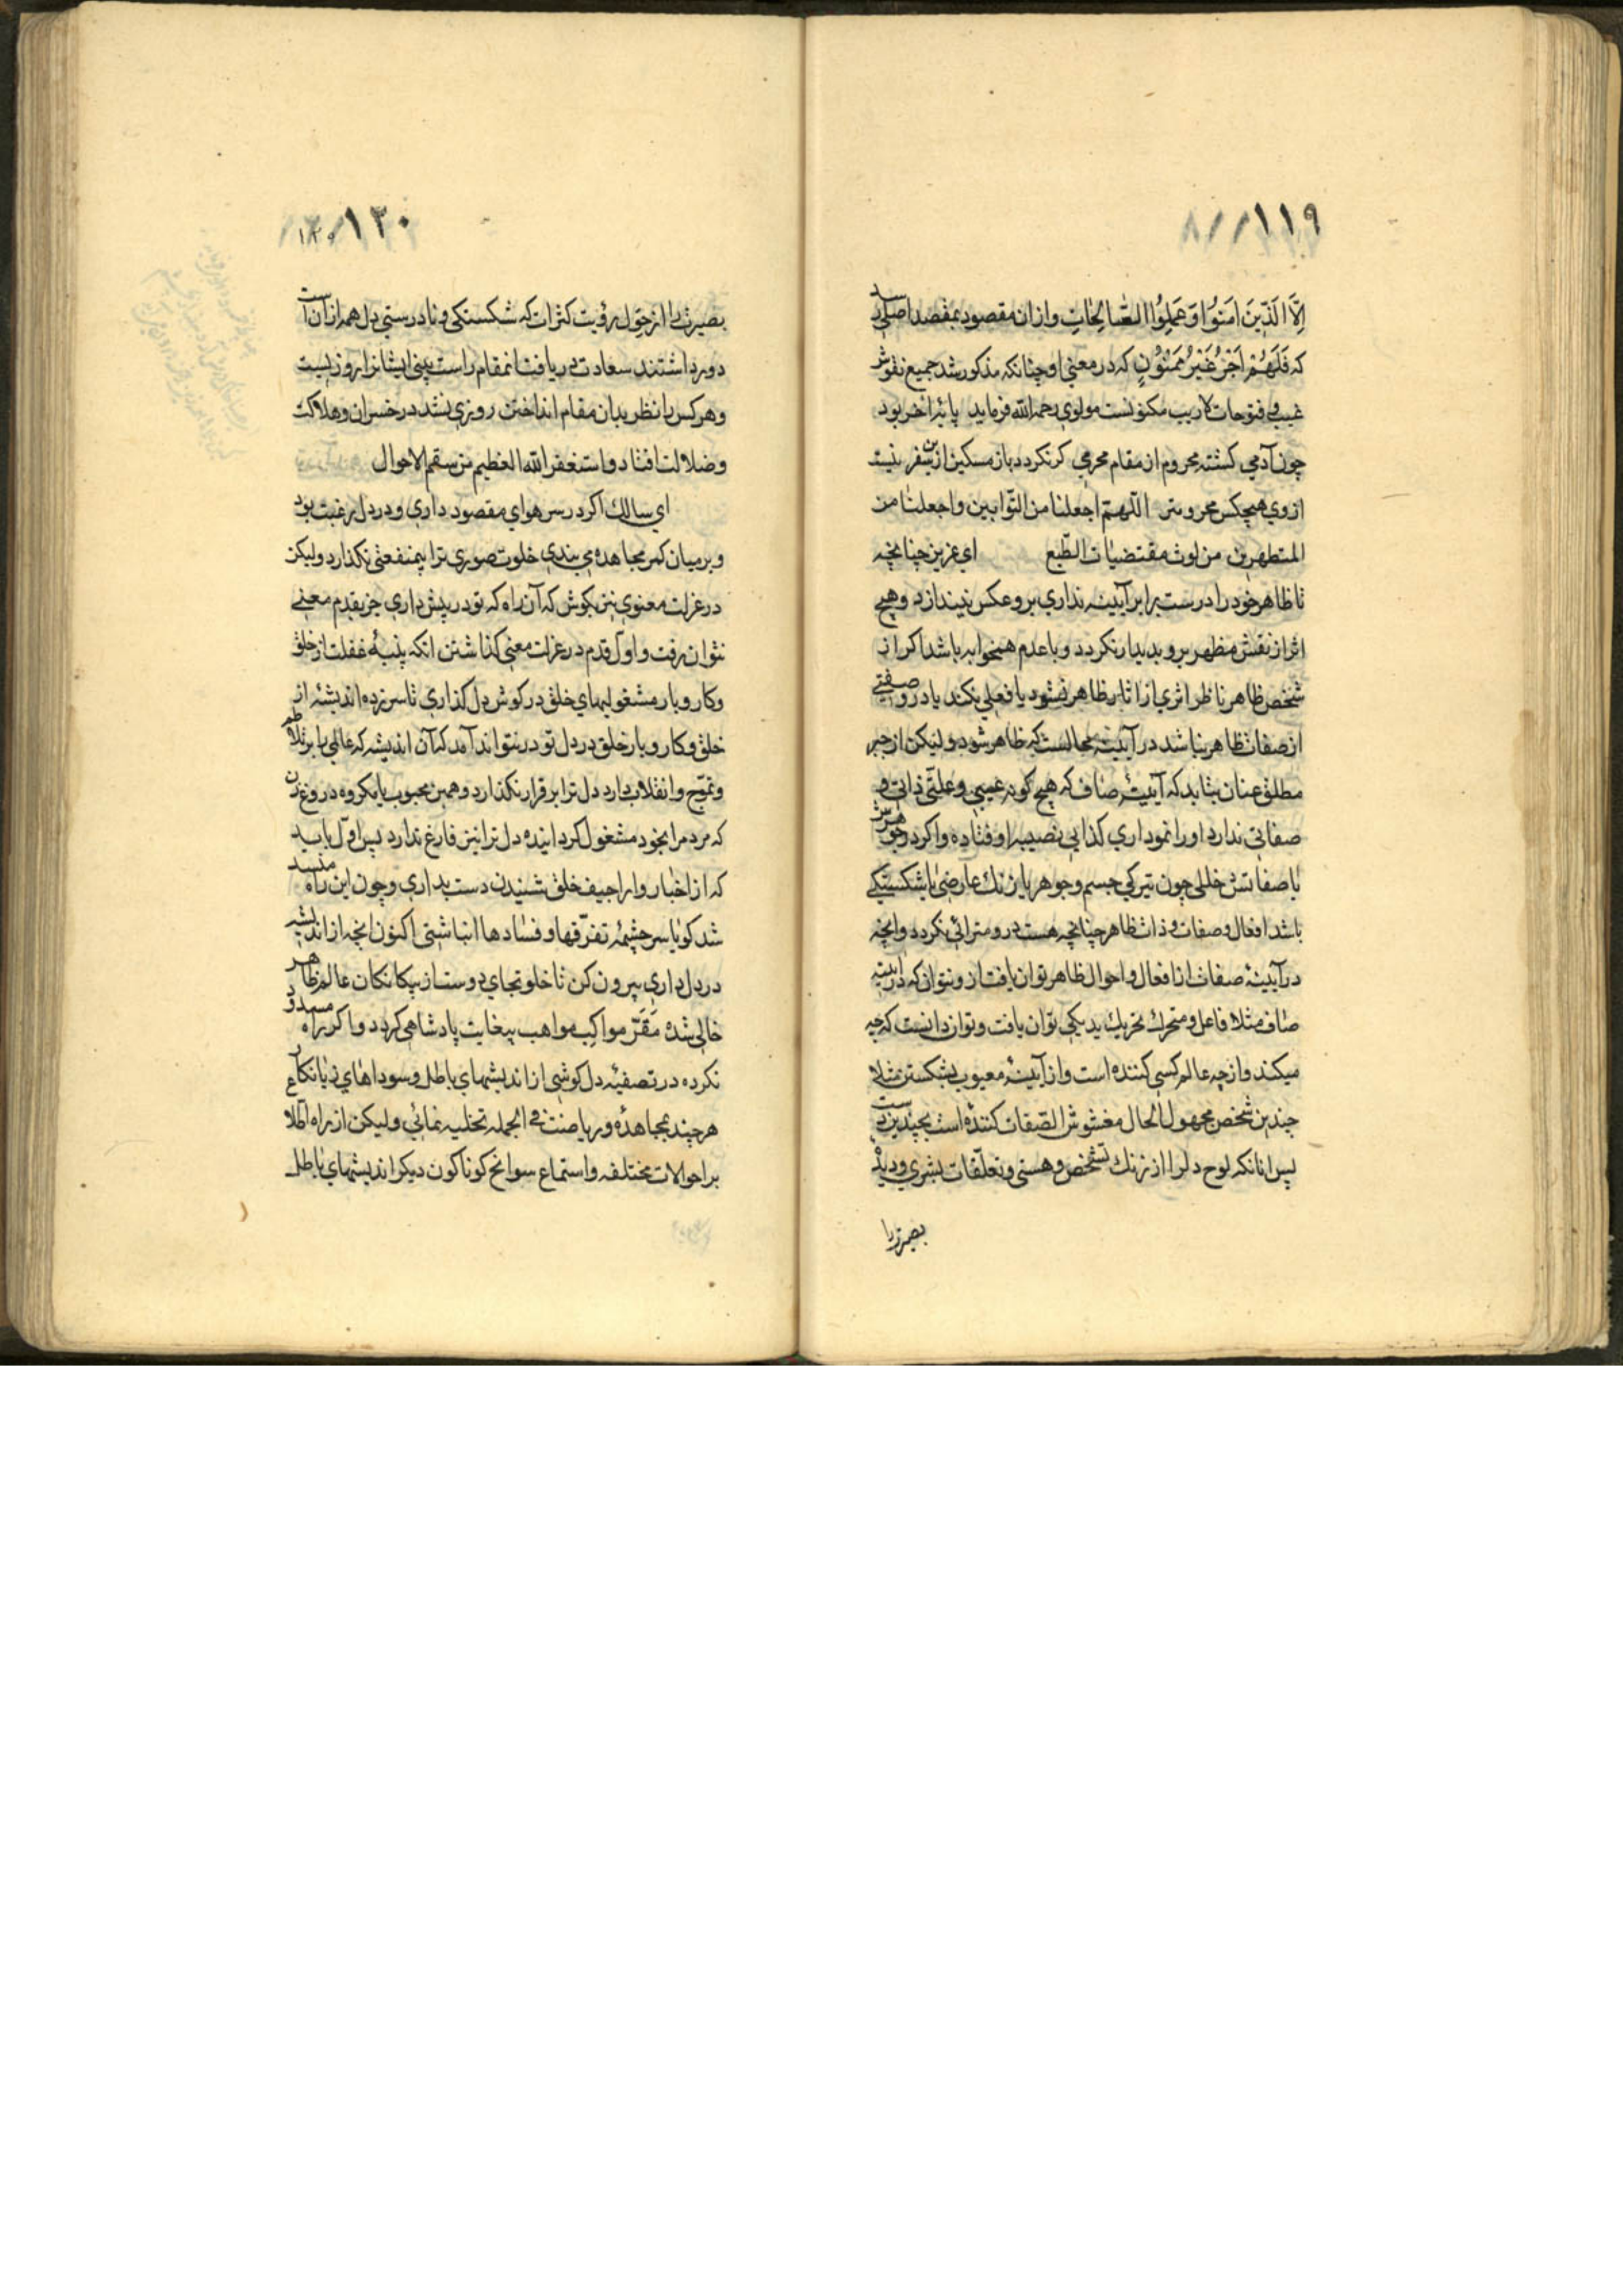 ١١٩
اِلَّا الَّذِينَ امَنُوا وَعَمِلُوا الصّالِحاتِ وازان مقصود بمقصد اصلي رسد
كه فَلَهُمْ اَجْرٌ غَيْرُ مَمْنُونٍ كه در معني او چنانكه مذكور شد جميع نقوش
غيب و فتوحات لاريب مكنونست مولوي رحمه الله فرمايد پايهٔ اخر بود
چون آدمي كشته محروم از مقام محرمي كر نكردد باز مسكين ازين سفر نيست
از وي هيچكس محروم تر اللّهمّ اجعلنا من التّوابين واجعلنا من
المتطهرين من لوث مقتضيات الطّبع اي عزيز چنانچه
تا ظاهر خود را درست برابر آيينه نداري برو عكس نيندازد وهيچ
اثر از نقش مظهر برو بديدار نكردد و با عدم همخوابه باشد اكر از
شخص ظاهر ناظر اثري از اثار ظاهر نشود يا فعلي نكند يا درو صفتي
از صفات ظاهر نباشد در آيينه محالست كه ظاهر شود وليكن از جبر
مطلق عنان بتابد كه آيينهٔ صاف كه هيچ كونه عيبي وعلتّي ذاتي و
صفاتي ندارد او را نموداري كذايي نصيبه افتاده واكر در جوهرش
يا صفاتش خللي چون تيركي جسم وجوهر يا زنك عارضي يا شكستكي
باشد افعال وصفات وذات ظاهر چنانچه هست درو مترائي نكردد وانچه
در آيينهٔ صفات از افعال واحوال ظاهر توان يافت از ونتوان كه در آيينه
صاف مثلا فاعل ومتحرك بتحريك يد يكي توان يافت وتوان دانست كه چه
ميكند واز چه عالم كسي كننده است واز آيينهٔ معيوب بشكستن مثلا
چندين شخص مجهول الحال مغشوش الصّفات كننده است بچندين دست
پس انانكه لوح دل را از زنك تشخص وهستي وتعلّقات بشري وديدهٔ
بصيرترا
١٢٠
بصيرت را از حِوَل رؤيت كثرات كه شكستكي ونادرستي دل همه ازان است
دور داشتند سعادت دريافت انمقام راست بيني ايشانرا روزيست
وهر كس را نظر بدان مقام انداختن روزي نشد در خسران وهلاكت
وضلالت افتاد واستغفر الله العظيم من سقم الاحوال
اي سالك اكر در سر هواي مقصود داري ودر دل رغبت بود
وبر ميان كمر مجاهده مي بندي خلوت صوري ترا بيمنفعتي نكذارد وليكن
در عزلت معنوي نيز بكوش كه آن راه كه تو در پيش داري جز بقدم معني
نتوان رفت واوّل قدم در عزلت معني كذاشتن انكه پنبهٔ غفلت از خلق
وكار وبار مشغوليهاي خلق در كوش دل كذاري تا سرزده انديشه از
خلق وكار وبار خلق در دل تو در نتواند آمد كه آن انديشه كه عالمي را بر تلاطم
وتموّج وانقلاب دارد دل ترا برقرار نكذارد وهمين محبوب يا مكروه دروغ زن
كه مردم را بخود مشغول كردانيده دل ترا نيز فارغ ندارد پس اوّل بايد
كه از اخبار واراجيف خلق شنيدن دست بداري وچون اين راه منسد
شد كويا سر چشمهٔ تفرّقها وفسادها انباشتي اكنون انچه از انديشه
در دل داري بيرون كن تا خلوتجاي دوست از بيكانكان عالم ظاهر
خالي شده مَقَرّ مواكب مواهب بيغايت پادشاهي كردد واكر راه مسدود
نكرده در تصفيهٔ دل كوشي از انديشهاي باطل وسوداهاي زيانكار
هر چند بمجاهده ورياضت في الجمله تخليه نمائي وليكن از راه اطّلاع
بر احوالات مختلفه واستماع سوانح كوناكون ديكر انديشهاي باطل